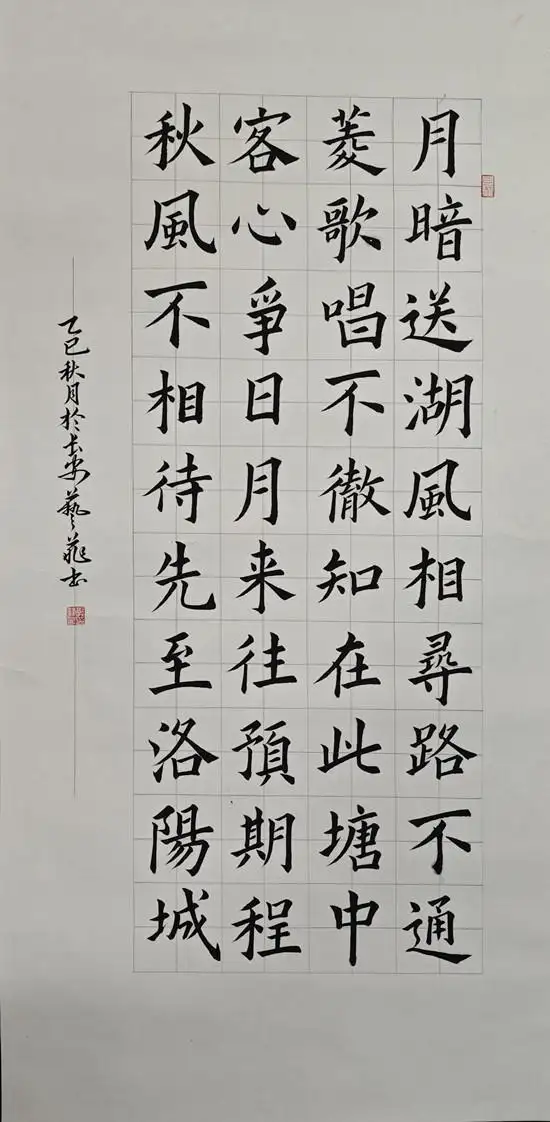 月暗送湖風相尋路不通
菱歌唱不徹知在此塘中
客心爭日月来往預期程
秋風不相待先至洛陽城
乙巳秋月於长安藝